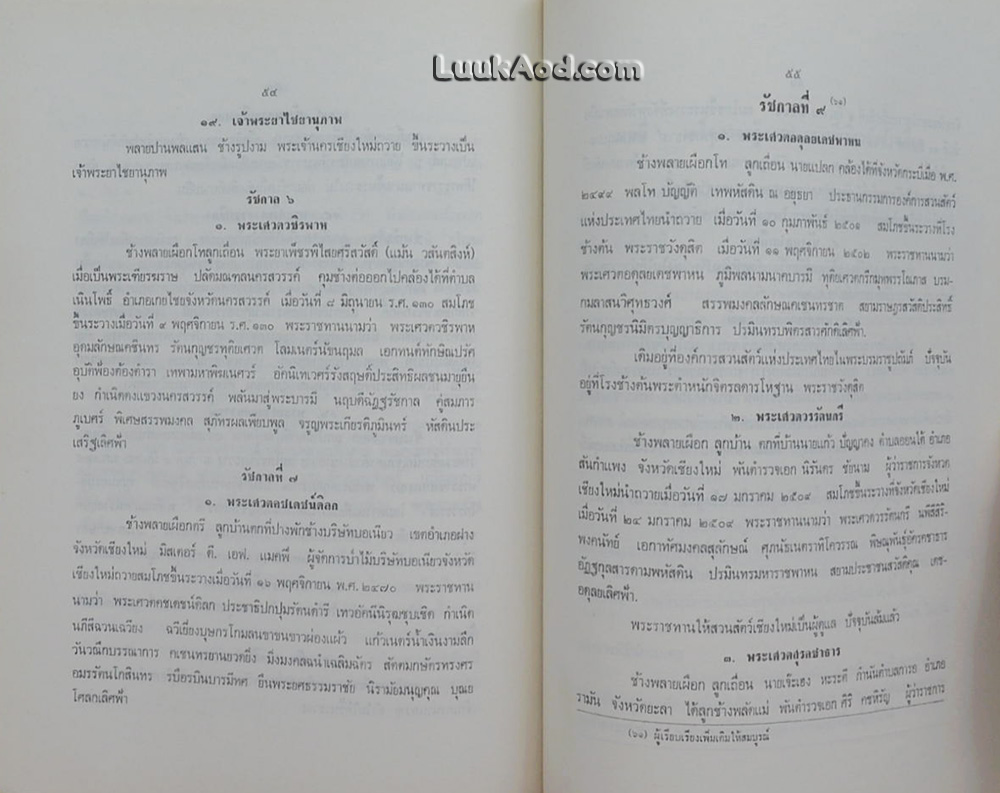 LuukAod.com
๕๔
๑๙. เจ้าพระยาไชยานุภาพ
พลายปานพลแสน ช้างรูปงาม พระเจ้านครเชียงใหม่ถวาย ขึ้นระวางเป็น
เจ้าพระยาไชยานุภาพ
รัชกาล ๖
๑. พระเศวตวชิรพาห
ช้างพลายเผือกโทลูกเถื่อน พระยาเพ็ชรพิไสยศรีสวัสดิ์ (แม้น วสันตสิงห์)
เมื่อเป็นพระเฑียรฆราษ ปลัดมณฑลนครสวรรค์ คุมช้างต่อออกไปคล้องได้ที่ตำบล
เนินโพธิ์ อำเภอเกยไชยจังหวัดนครสวรรค์ เมื่อวันที่ ๘ มิถุนายน ร.ศ. ๑๓๐ สมโภช
ขึ้นระวางเมื่อวันที่ ๙ พฤศจิกายน ร.ศ. ๑๓๐ พระราชทานนามว่า พระเศวตวชิรพาห
อุดมลักษณคชินทร รัตนกุญชรทุติยเศวต โลมเนตร์นัขนฤมล เอกทนต์ทักษิณปรัศ
อุบัติพ้องต้องตำรา เทพามหาพิฆเนศวร์ อัคนิเทเวศร์รังสฤษดิ์ประสิทธิผลชนมายุยืน
ยง กำเนิดดงแขวงนครสวรรค์ พลันมาสู่พระบารมี นฤบดีฉัฏฐรัชกาล คู่สมภาร
ภูเบศร์ พิเศษสรรพมงคล สุภัทรผลเพียบพูล จรูญพระเกียรติภูมินทร์ หัสดินประ
เสริฐเลิศฟ้า
รัชกาลที่ ๗
๑. พระเศวตคชเดชน์ดิลก
ช้างพลายเผือกตรี ลูกบ้านตกที่ปางพักช้างบริษัทบอเนียว เขตอำเภอฝาง
จังหวัดเชียงใหม่ มิสเตอร์ ดี. เอฟ. แมคฟี ผู้จัดการป่าไม้บริษัทบอเนียวจังหวัด
เชียงใหม่ถวายสมโภชขึ้นระวางเมื่อวันที่ ๑๖ พฤศจิกายน พ.ศ. ๒๔๗๐ พระราชทาน
นามว่า พระเศวตคชเดชน์ดิลก ประชาธิปกปุมรัตนดำรี เทวอัคนีนิรุฒชุบเชิด กำเนิด
นภีสีฉวนเฉวียง ฉวีเยี่ยงบุษกรโกมลนขาขนขาวผ่องแผ้ว แก้วเนตร์น้ำเงินงามลึก
วันวณึกบรรณาการ คเชนทรยานยวดยิ่ง มิ่งมงคลฉนำเฉลิมฉัตร สัตตมกษัตรทรงศร
อมรรัตนโกสินทร รบือรบินบารมีทศ ยืนพระยศธรรมราชัย นิรามัอมนุญคุณ บุณย
โศลกเลิศฟ้า
๕๕
รัชกาลที่ ๙ (๖๑)
๑. พระเศวตอดุลยเดชพาหน
ช้างพลายเผือกโท ลูกเถื่อน นายแปลก คล้องได้ที่จังหวัดกระบี่เมื่อ พ.ศ.
๒๔๙๙ พลโท บัญญัติ เทพหัสดิน ณ อยุธยา ประธานกรรมการองค์การสวนสัตว์
แห่งประเทศไทยนำถวาย เมื่อวันที่ ๑๐ กุมภาพันธ์ ๒๕๐๑ สมโภชขึ้นระวางที่โรง
ช้างต้น พระราชวังดุสิต เมื่อวันที่ ๑๑ พฤศจิกายน ๒๕๐๒ พระราชทานนามว่า
พระเศวตอดุลยเดชพาหน ภูมิพลนามนาคบารมี ทุติยเศวตกรีกมุทพรรโณภาส บรม-
กมลาสนวิศุทธวงศ์ สรรพมงคลลักษณคเชนทรชาต สยามราษฎรสวัสดิประสิทธิ์
รัตนกุญชรนิมิตรบุญญาธิการ ปรมินทรบพิตรสารศักดิเลิศฟ้า.
เดิมอยู่ที่องค์การสวนสัตว์แห่งประเทศไทยในพระบรมราชูปถัมภ์ ปัจจุบัน
อยู่ที่โรงช้างต้นพระตำหนักจิตรลดารโหฐาน พระราชวังดุสิต
๒. พระเศวตวรรัตนกรี
ช้างพลายเผือก ลูกบ้าน ตกที่บ้านนายแก้ว ปัญญาคง ตำบลออนใต้ อำเภอ
สันกำแพง จังหวัดเชียงใหม่ พันตำรวจเอก นิรันดร ชัยนาม ผู้ว่าราชการจังหวัด
เชียงใหม่นำถวายเมื่อวันที่ ๑๗ มกราคม ๒๕๐๙ สมโภชขึ้นระวางที่จังหวัดเชียงใหม่
เมื่อวันที่ ๒๔ มกราคม ๒๕๐๙ พระราชทานนามว่า พระเศวตวรรัตนกรี นพีสีสิริ-
พงศนัทย์ เอกาทัศมงคลสุลักษณ์ ศุภนัขเนตราทิโควรรณ พิษณุพันธุ์อัครคชาธาร
อัฏฐกุลสารดามพหัสดิน ปรมินทรมหาราชพาหน สยามประชาชนสวัสดิคุณ เดช-
อดุลยเลิศฟ้า.
พระราชทานให้สวนสัตว์เชียงใหม่เป็นผู้ดูแล ปัจจุบันล้มแล้ว
๓. พระเศวตสุรคชาธาร
ช้างพลายเผือก ลูกเถื่อน นายเจ๊ะเฮง หะระตี กำนันตำบลการอ อำเภอ
รามัน จังหวัดยะลา ได้ลูกช้างพลัดแม่ พันตำรวจเอก ศิริ คชหิรัญ ผู้ว่าราชการ
(๖๑) ผู้เรียบเรียงเพิ่มเติมให้สมบูรณ์